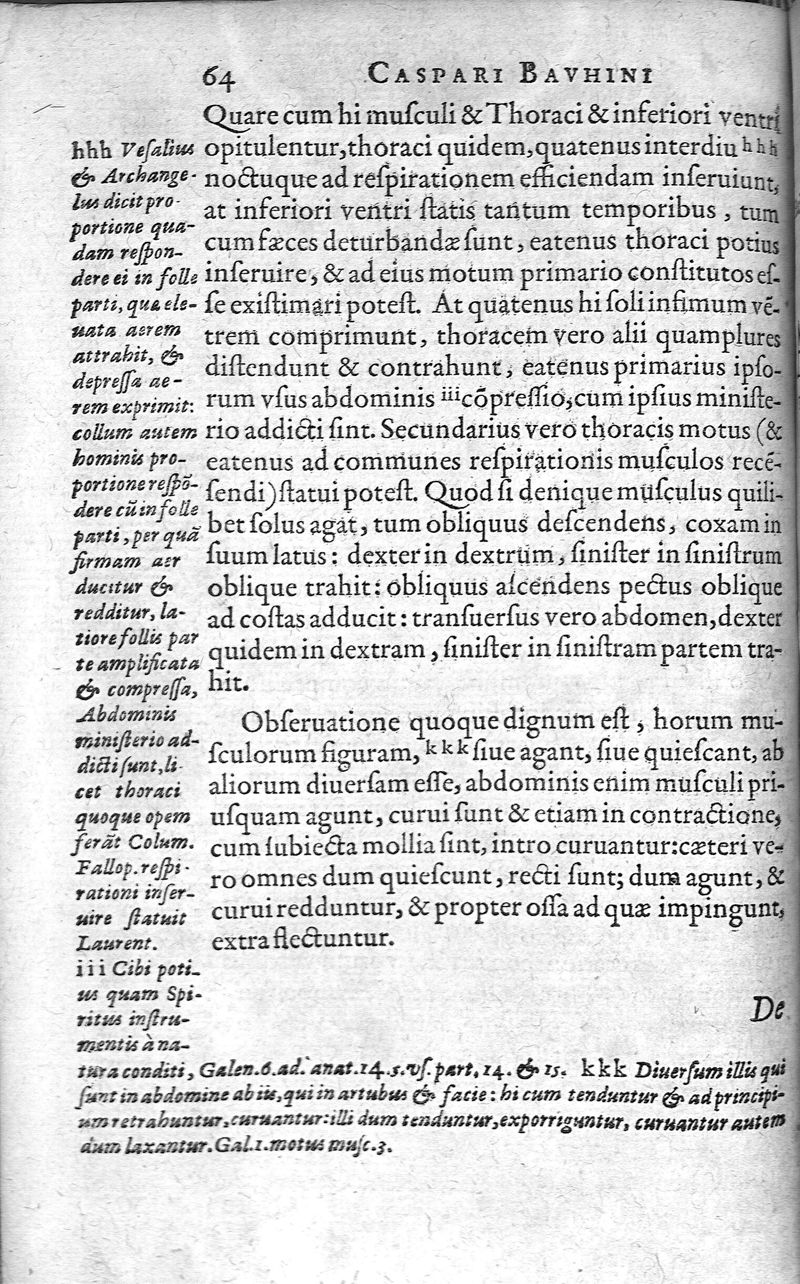 64 CASPARI BAVHINI
Quare cum hi muſculi & Thoraci & inferiori ventri
opitulentur, thoraci quidem, quatenus interdiu hhh
noctuque ad reſpirationem efficiendam inſeruiunt,
at inferiori ventri ſtatis tantum temporibus, tum
cum fæces deturbandæ ſunt, eatenus thoraci potius
inſeruire, & ad eius motum primario conſtitutos eſ-
ſe exiſtimari poteſt. At quatenus hi ſoli infimum vē-
trem comprimunt, thoracem vero alii quamplures
diſtendunt & contrahunt, eatenus primarius ipſo-
rum vſus abdominis iii cōpreſſio, cum ipſius miniſte-
rio addicti ſint. Secundarius vero thoracis motus (&
eatenus ad communes reſpirationis muſculos recē-
ſendi) ſtatui poteſt. Quod ſi denique muſculus quili-
bet ſolus agat, tum obliquus deſcendens, coxam in
ſuum latus: dexter in dextrum, ſiniſter in ſiniſtrum
oblique trahit: obliquus aſcendens pectus oblique
ad coſtas adducit: tranſuerſus vero abdomen, dexter
quidem in dextram, ſiniſter in ſiniſtram partem tra-
hit.
Obſeruatione quoque dignum eſt, horum mu-
ſculorum figuram, kkk ſiue agant, ſiue quieſcant, ab
aliorum diuerſam eſſe, abdominis enim muſculi pri-
uſquam agunt, curui ſunt & etiam in contractione,
cum ſubiecta mollia ſint, intro curuantur: cæteri ve-
ro omnes dum quieſcunt, recti ſunt; dum agunt, &
curui redduntur, & propter oſſa ad quæ impingunt,
extra flectuntur.
De
hhh Veſalius
& Archange-
lus dicit pro-
portione qua-
dam reſpon-
dere ei in folle
parti, qua ele-
uata aerem
attrahit, &
depreſſa ae-
rem exprimit:
collum autem
hominis pro-
portione reſpō-
dere cū in folle
parti, per quā
firmam aer
ducitur &
redditur, la-
tiore follis par
te amplificata
& compreſſa,
Abdominis
miniſterio ad-
dicti ſunt, li-
cet thoraci
quoque opem
ferāt Colum.
Fallop. reſpi-
rationi inſer-
uire ſtatuit
Laurent.
iii Cibi poti-
us quam Spi-
ritus inſtru-
mentis à na-
tura conditi, Galen. 6. ad. anat. 14. 5. vſ. part. 14. & 15. kkk Diuerſum illis qui
ſunt in abdomine ab iis, qui in artubus & facie: hi cum tenduntur & ad principi-
um retrahuntur, curuantur: illi dum tenduntur, exporriguntur, curuantur autem
dum laxantur. Gal. 1. motus muſc. 3.